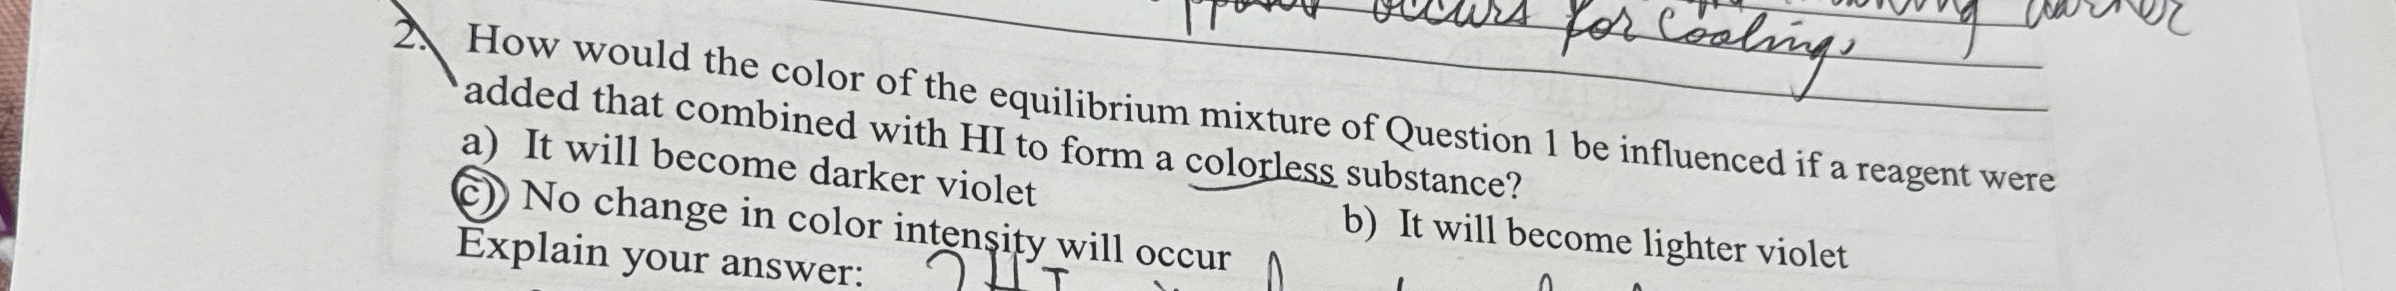 occurs for cooling,
2. How would the color of the equilibrium mixture of Question 1 be influenced if a reagent were
added that combined with HI to form a colorless substance?
a) It will become darker violet
b) It will become lighter violet
c) No change in color intensity will occur
Explain your answer:
2HI